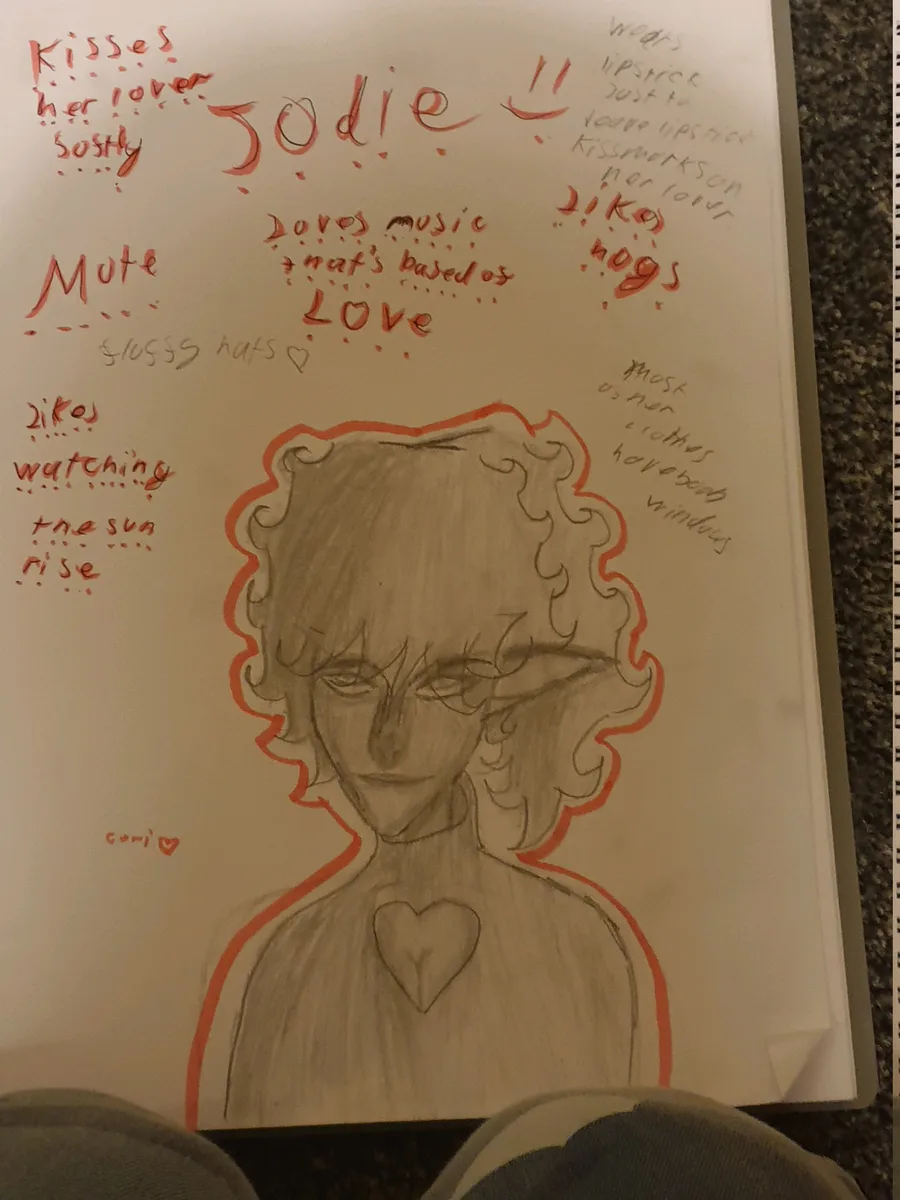 Kisses
her lover
sostly
Jodie !!
wears
lipstick
Just to
leave lipstick
Kissmarks on
her lover
Likes
hogs
Loves music
that's based os
Love
Mute
slossy hats ♡
Likes
watching
the sun
rise
Most
os her
clothes
have boob
windows
comi ♡